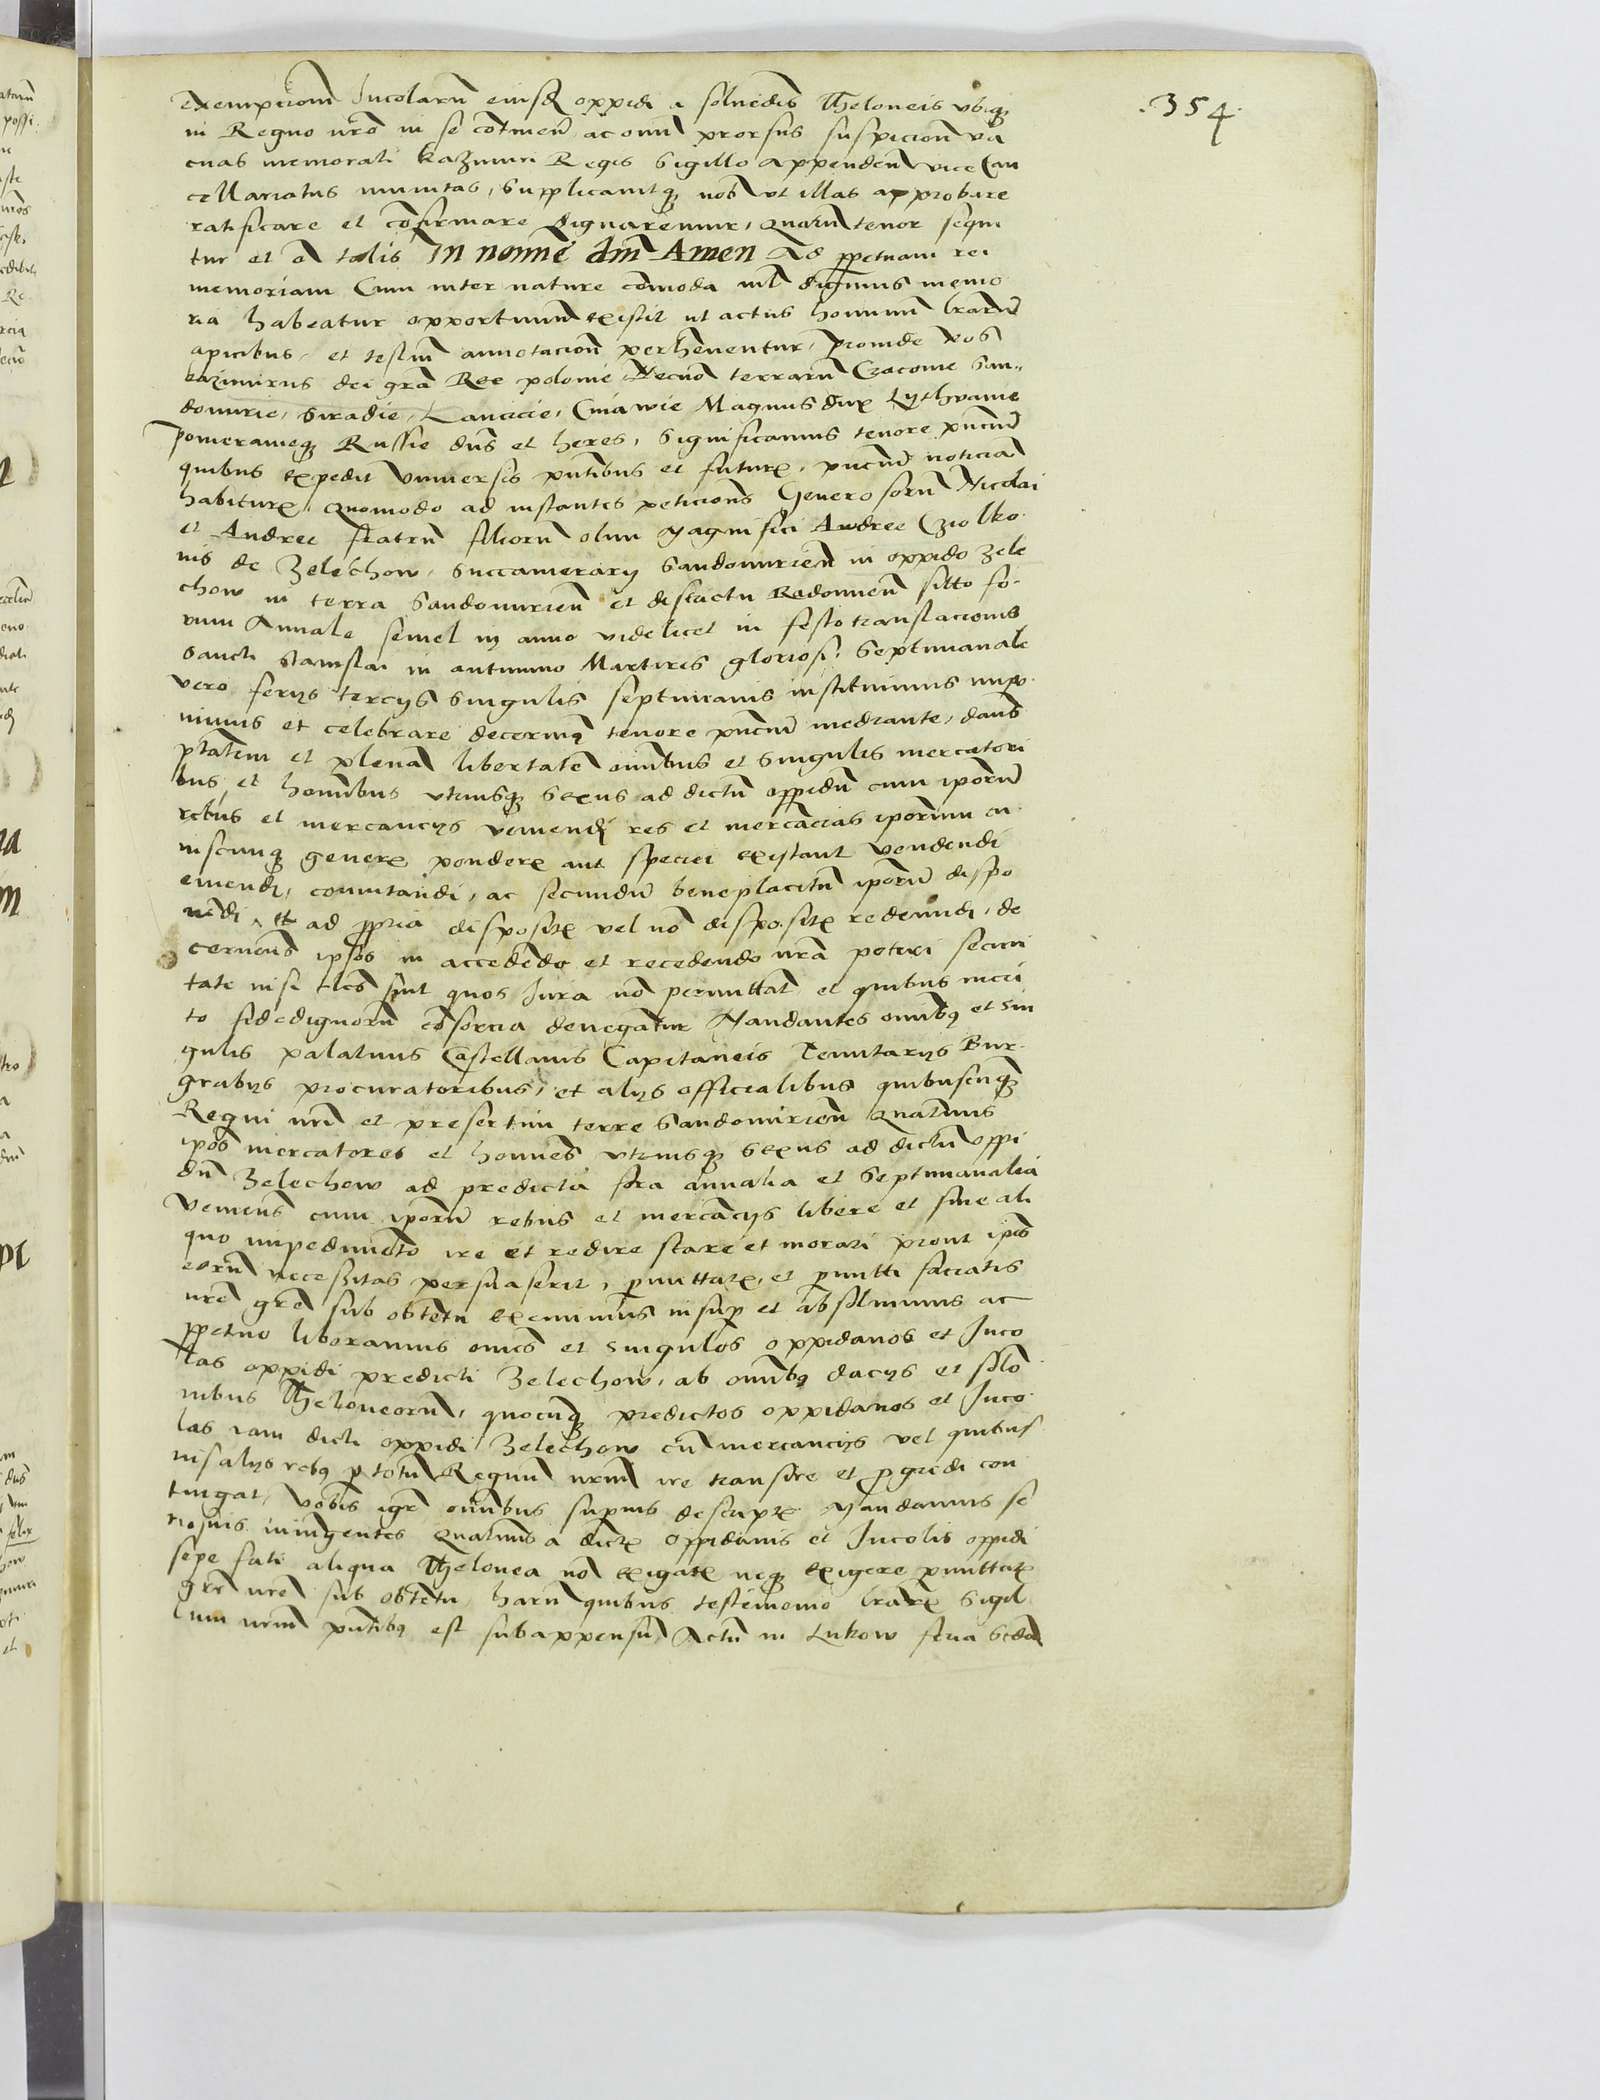 .354.
exempcionem Incolarum eiusdem oppidi a solvendis Theloneis ubique
in Regno nro in se continen ac omni prorsus suspicione va
cuas memorati Kazimiri Regis Sigillo appenden vice Can
cellariatus munitas, Supplicavitque nobis ut illas approbare
ratificare et confirmare dignaremur, Quarum tenor sequi
tur et est talis In nomine dni Amen Ad perpetuam rei
memoriam Cum inter nature comoda nil dignius memo
ria habeatur opportunum existit ut actus hominum lrarum
apicibus, et testium annotacione perhennentur, proinde Nos
kazimirus dei gra Rex polonie Necnon terrarum Cracovie San„
domirie, Siradie, Lancicie, Cuiavie Magnus dux Lythvanie
pomeranieque Russie dns et heres, Significamus tenore pncium
quibus expedit universis pntibus et futuris, pncium noticiam
habituris, Quomodo ad instantes peticiones Generosorum Nicolai
et Andree fratrum filiorum olim Magnifici Andree Cziolko
nis de Zelechow, Succamerarij Sandomirien in oppido Zele
chow in terra Sandomirien et districtu Radomien sitto fo-
rum Annale semel in anno videlicet in festo translacionis
Sancti Stanislai in autumno Martiris gloriosi, Septimanale
vero ferijs tercijs singulis septimanis instituimus impo
nimus et celebrare decernimus tenore pncium mediante, dans
ptatem et plenam libertatem omnibus et singulis mercatori
bus, et hominibus utriusque sexus ad dictum oppidum cum iporum
rebus et mercancijs veniendi res et mercancias iporum cu
iuscunque generis ponderis aut speciei existant vendendi
emendi, comutandi, ac secundum beneplacitum iporum dispo
nendi, et ad propria dispositis vel non dispositis redeundi, de
cernens ipsos in accedendo et recedendo nra potiri securi
tate nisi tales sint quos Iura non permittant et quibus meri
to fidedignorum consorcia denegantur Mandantes omnibus et sin
gulis palatinis Castellanis Capitaneis Tenutarijs Bur-
grabijs procuratoribus, et alijs officialibus quibuscunque
Regni nri et presertim terre Sandomirien Quatenus
ipos mercatores et homines utriusque sexus ad dictum oppi
dum Zelechow ad predicta fora annalia et Septimanalia
venientes cum iporum rebus et mercancijs libere et sine ali
quo impedimento ire et redire stare et morari prout ipos
eorum necessitas persuaserit, permittatis, et permitti faciatis
nre gre sub obtentu Eximimus insuper et absolvimus ac
perpetuo liberamus omnes et singulos oppidanos et Inco
las oppidi predicti Zelechow, ab omnibus dacijs et solucio
nibus Theloneorum, quocunque predictos oppidanos et Inco
las iam dicti oppidi Zelechow cum mercancijs vel quibus
vis alijs rebus per totum Regnum nrum ire transire et progredi con
tingat, vobis igr omnibus superius descriptis Mandamus se
riosius iniungentes Quatenus a dictis oppidanis et Incolis oppidi
sepe fati aliqua Thelonea non exigatis neque exigere permittatis
gre nre sub obtentu, harum quibus testimonio lrarum Sigil
lum nrum pntibus est subappensum Actum in Lukow feria Scda